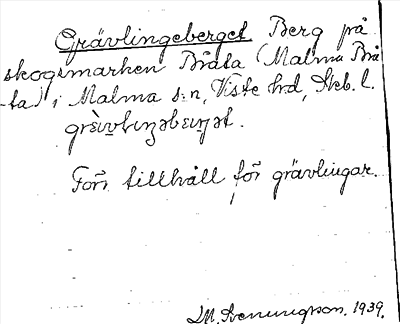 Grävlingeberget Berg på
skogsmarken Bråta (Malma Brå
-ta) i Malma s:n, Viste hd, Skb. l.
Förr tillhåll för grävlingar.
M. Sveningson. 1939.